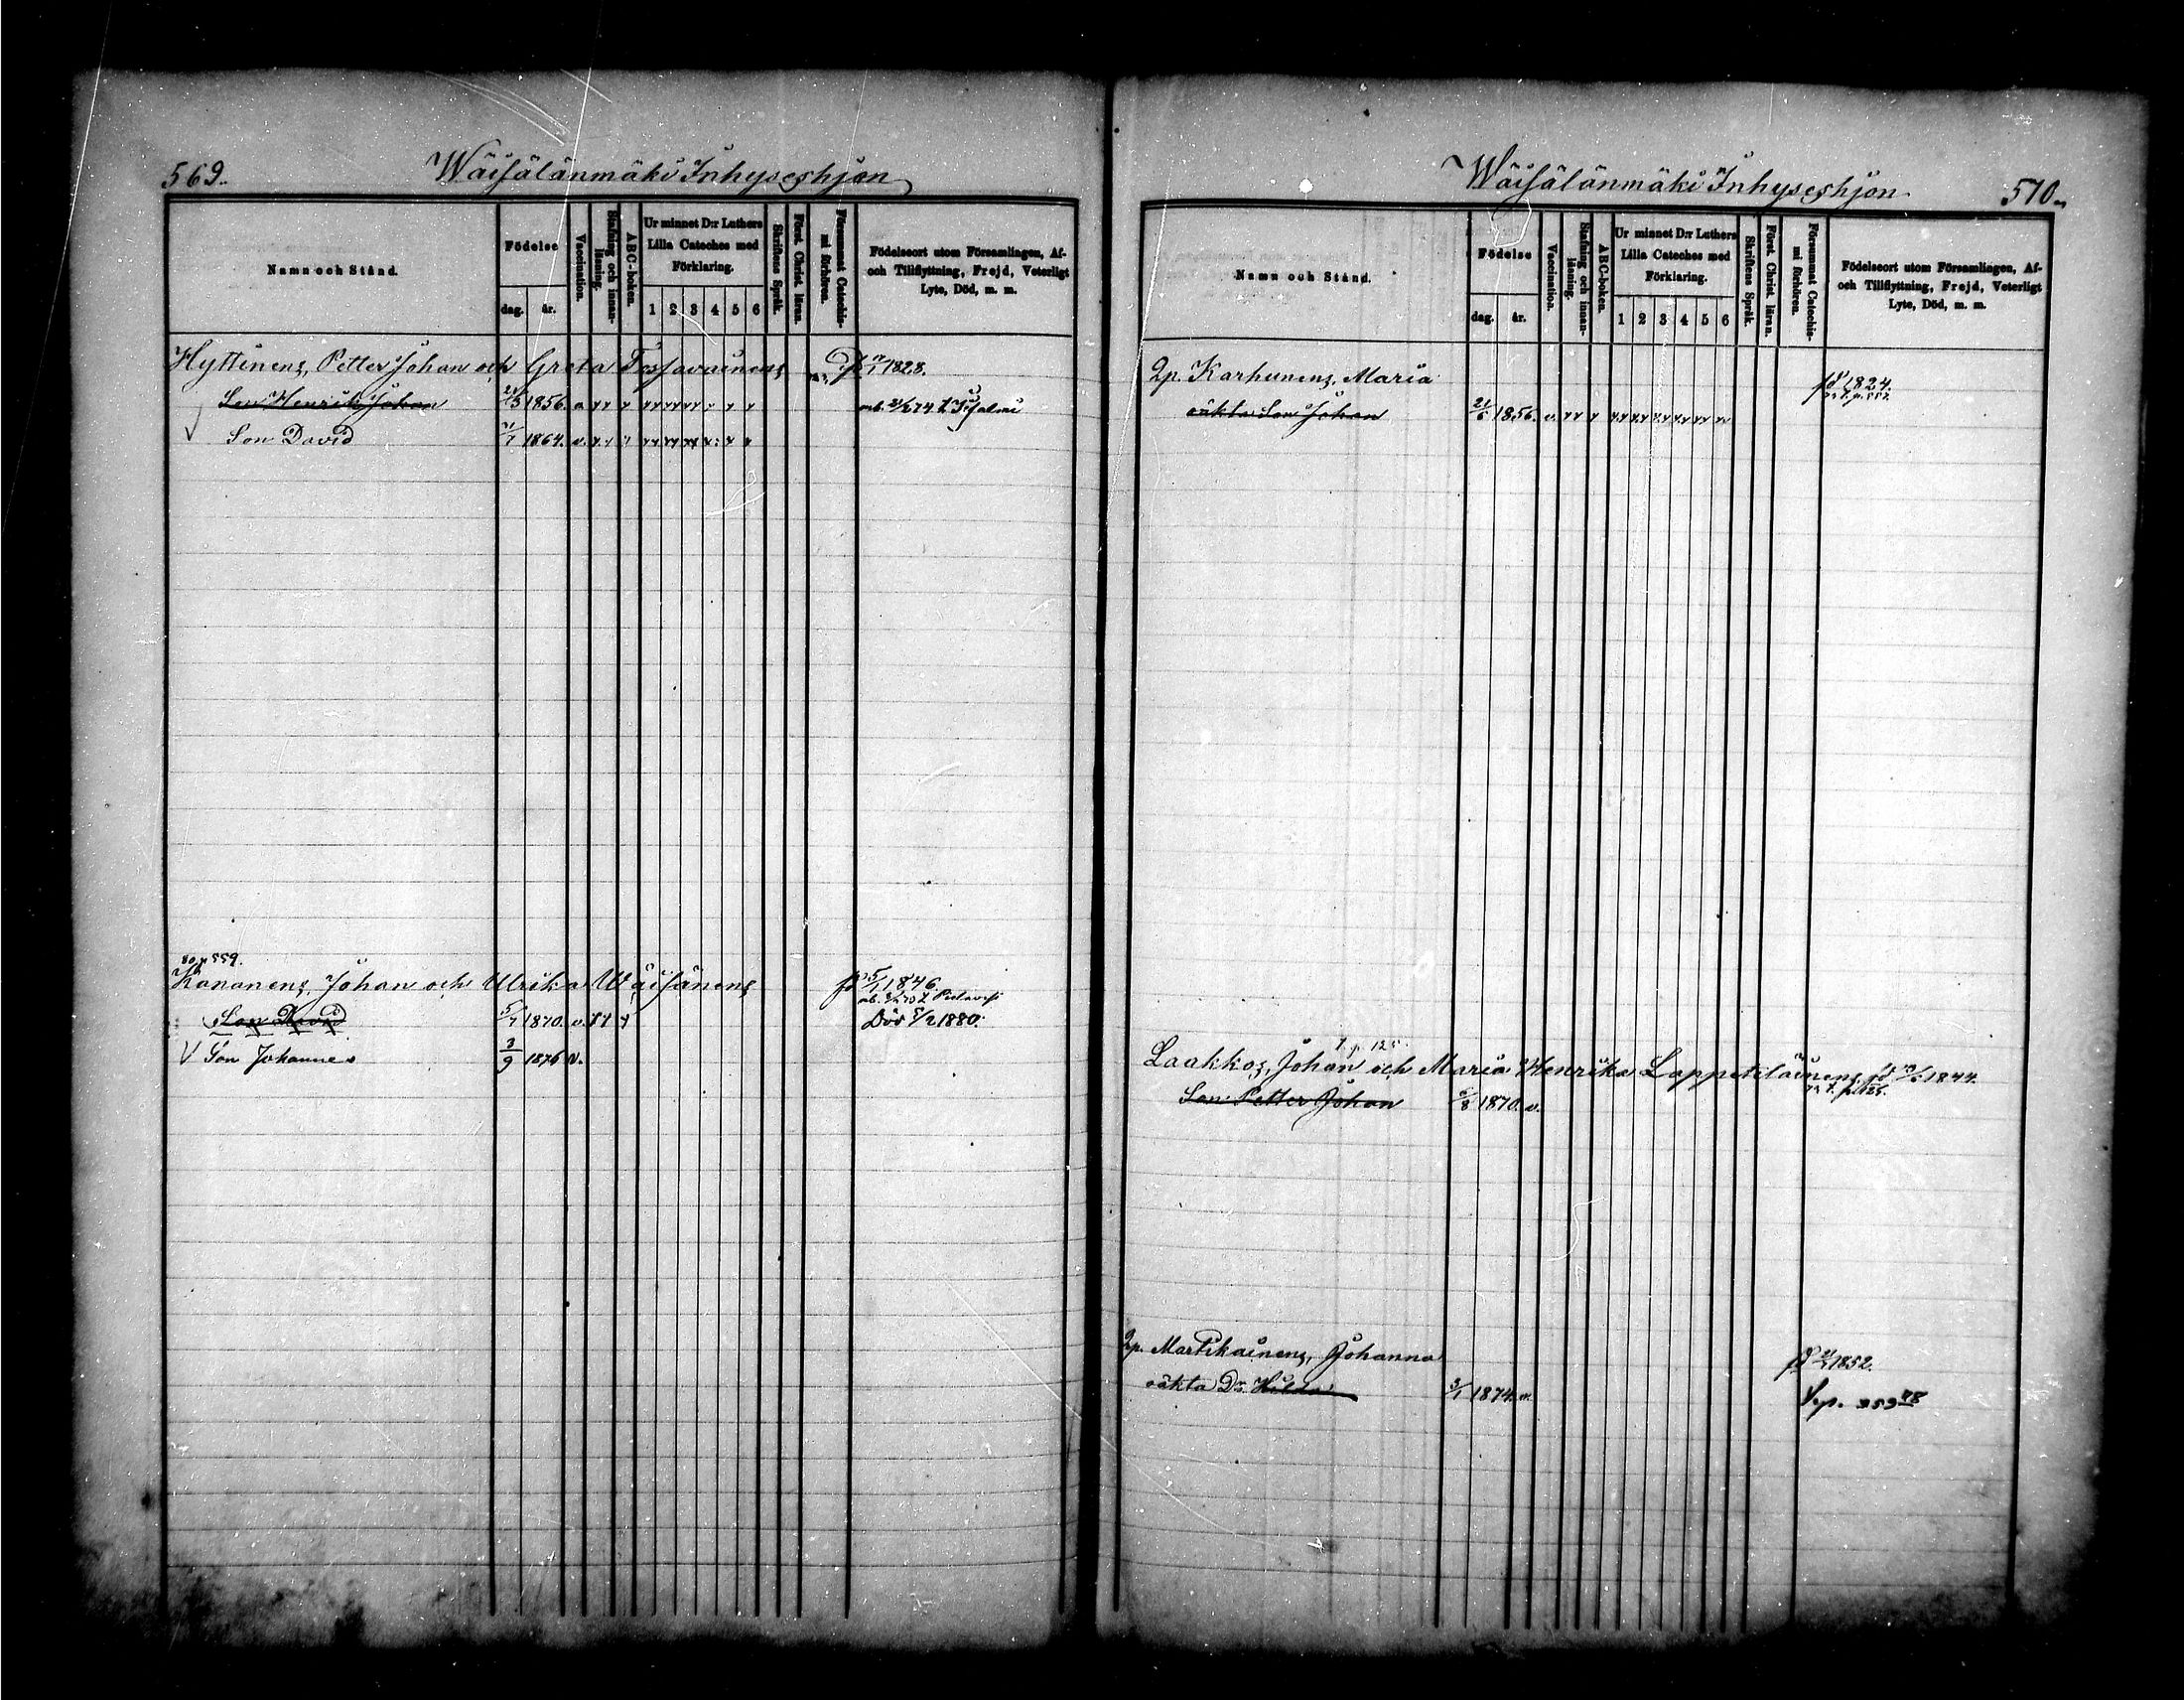 569.
Wäisälänmäki Inhyseshjon
Namn och Stånd.
Födelse
dag.
år.
Vaccination.
Stafning och innanläsning.
ABC-boken.
Ur minnet D:r Luthers Lilla Cateches med Förklaring.
1 2 3 4 5 6
Skriftens Språk.
Först. Christ. läran.
Försummat Catechismi förhören.
Födelseort utom Församlingen, Af- och Tillflyttning, Frejd, Veterligt Lyte, Död, m. m.
Hyttinens, Petter Johan och Greta Tossavainens 1828.
Son Henrik Johan 1856. Iisalmi
Son David 1864. v.
559.
Kananens, Johan och Ulrika Wäisänens fd 5/1 1846.
Son David 5/7 1870. v. Död 5/2 1880.
V Son Johannes 3/9 1876 v.
Wäisälänmäki Inhyseshjon
570.
Namn och Stånd.
Födelse
dag.
år.
Vaccination.
Stafning och innanläsning.
ABC-boken.
Ur minnet D:r Luthers Lilla Cateches med Förklaring.
1 2 3 4 5 6
Skriftens Språk.
Först. Christ. läran.
Försummat Catechismi förhören.
Födelseort utom Församlingen, Af- och Tillflyttning, Frejd, Veterligt Lyte, Död, m. m.
Qp. Karhunens, Maria fd 1824.
oäkta Son Johan 21/6 1856. v.
T. p. 125.
Laakkos, Johan och Maria Henrika Lappetiläinens fd 1844.
Son Petter Johan 6/8 1870. v.
Qp. Martikainens, Johanna fd 1852.
oäkta Dr Hilda 3/1 1874. v.